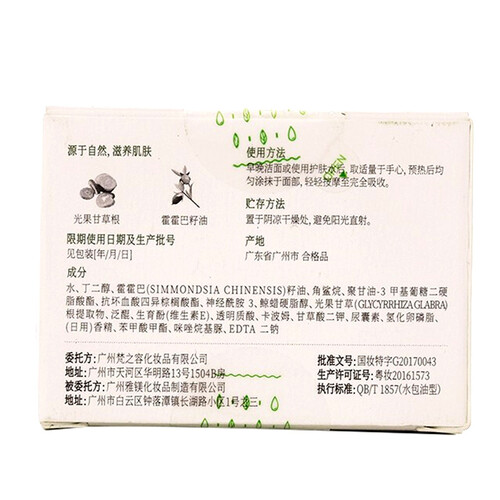 源于自然, 滋养肌肤
光果甘草根
霍霍巴籽油
限期使用日期及生产批号
见包装[年/月/日]
使用方法
早晚洁面或使用护肤水后, 取适量于手心, 预热后均
匀涂抹于面部, 轻轻按摩至完全吸收。
贮存方法
置于阴凉干燥处, 避免阳光直射。
产地
广东省广州市 合格品
成分
水、丁二醇、霍霍巴(SIMMONDSIA CHINENSIS)籽油、角鲨烷、聚甘油-3 甲基葡糖二硬
脂酸酯、抗坏血酸四异棕榈酸酯、神经酰胺 3、鲸蜡硬脂醇、光果甘草(GLYCYRRHIZA GLABRA)
根提取物、泛醌、生育酚(维生素E)、透明质酸、卡波姆、甘草酸二钾、尿囊素、氢化卵磷脂、
(日用)香精、苯甲酸甲酯、咪唑烷基脲、EDTA 二钠
委托方: 广州梵之容化妆品有限公司
地址: 广州市天河区华明路13号1504B房
被委托方: 广州雅镁化妆品制造有限公司
地址: 广州市白云区钟落潭镇长湖路小区1号之三
批准文号: 国妆特字G20170043
生产许可证号: 粤妆20161573
执行标准: QB/T 1857(水包油型)